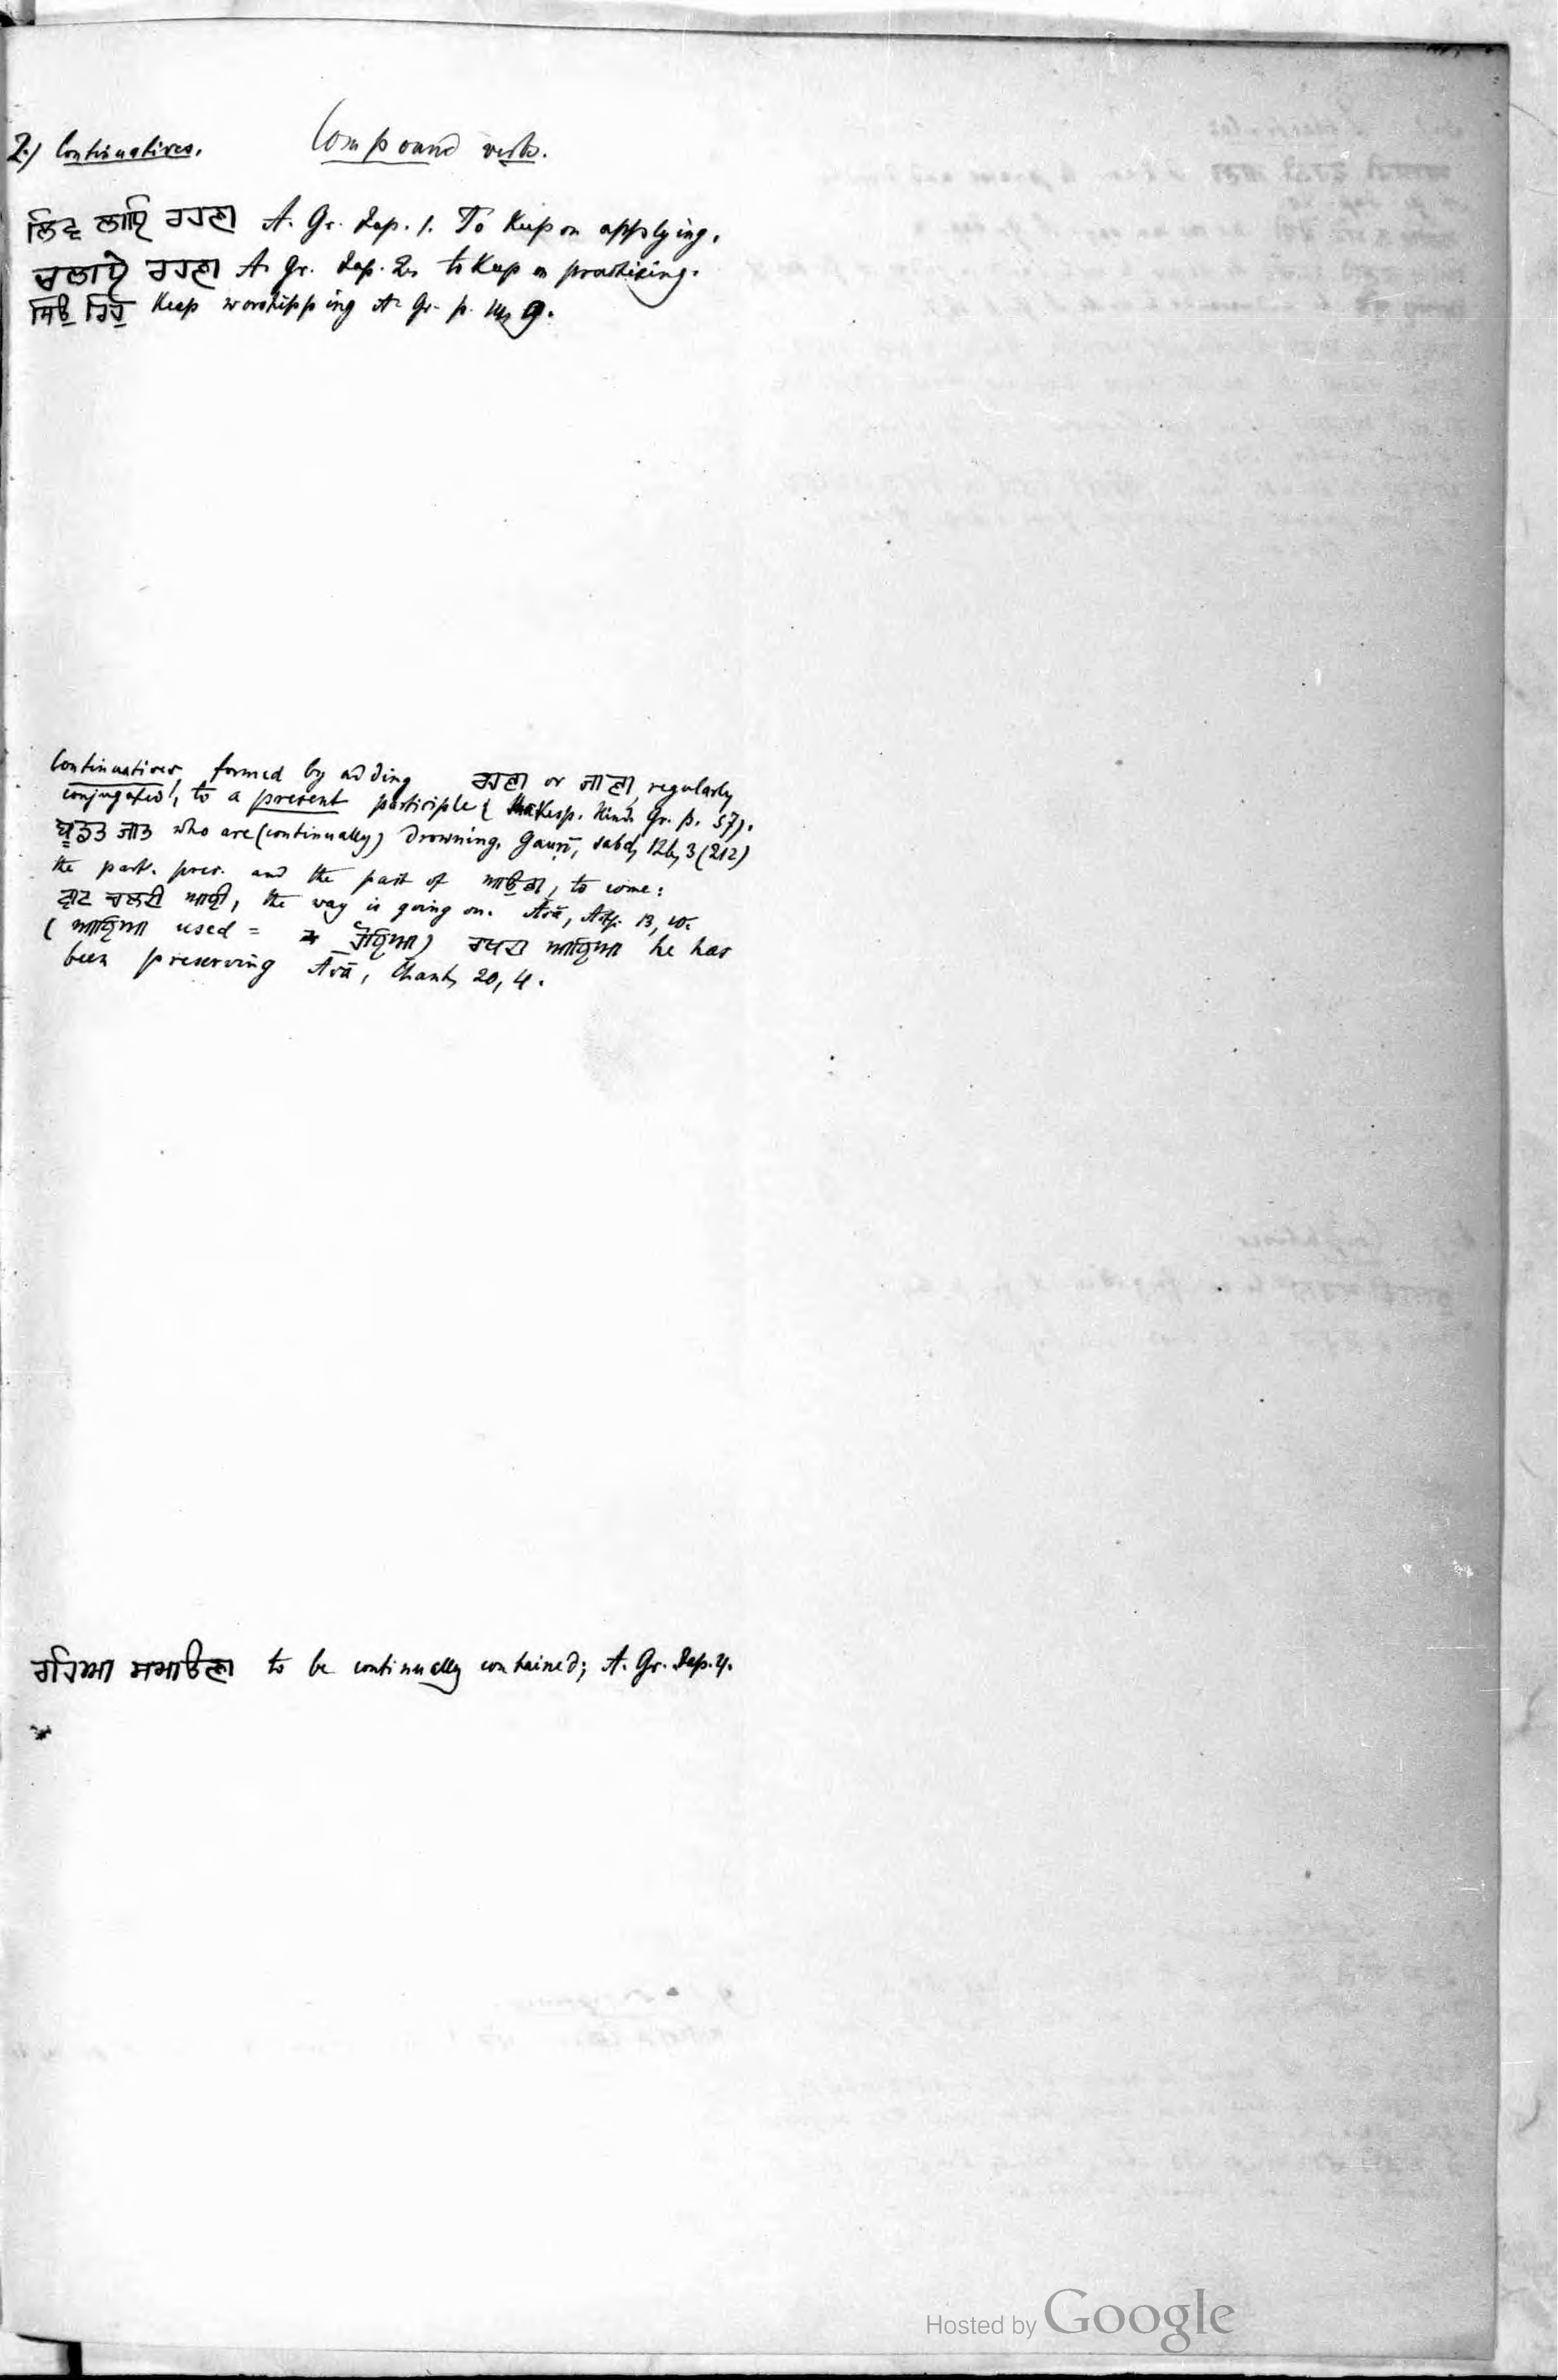 2.) Continuatives. Compound verbs.
ਲਿਵ ਲਾਇ ਰਹਣਾ A. Gr. Jap. 1. To keep on applying.
ਚਲਾਏ ਰਹਣਾ A. Gr. Jap. 2. to keep on practising.
ਸਿਉ ਰਿਹੁ Keep worshipping A. Gr. p. 9.
Continuatives, formed by adding ਰਹਣਾ or ਜਾਣਾ, regularly
conjugated, to a present participle (Shakesp. Hind. Gr. p. 57).
ਬੂਡਤ ਜਾਤ who are (continually) drowning. Gauṛī, sabd, 126, 3 (212)
the part. pres. and the past of ਆਉਣਾ, to come:
ਵਾਟ ਚਲਦੀ ਆਈ, the way is going on. Āsā, Aṣṭ. 13, 10.
(ਆਇਆ used = ਹੋਇਆ) ਰਖਦਾ ਆਇਆ he has
been preserving Āsā, Chant, 20, 4.
ਰਹਿਆ ਸਮਾਉਣਾ to be continually contained; A. Gr. Jap. 4.
Hosted by Google